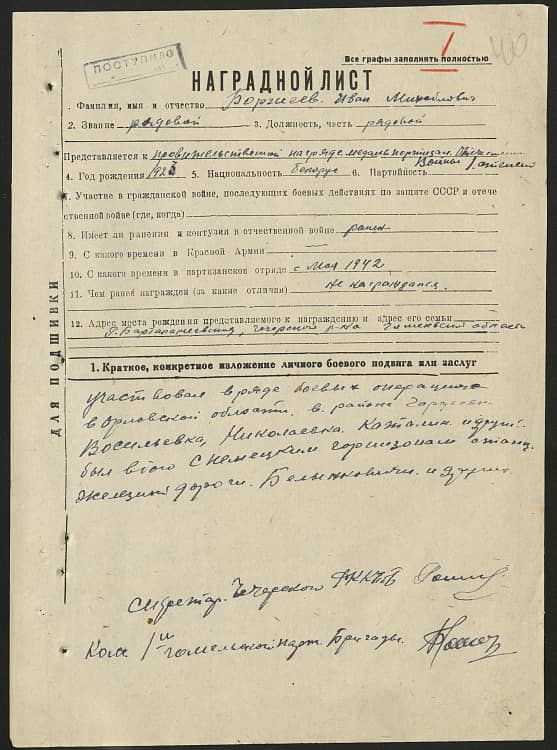 40
I
ПОСТУПИЛО
Все графы заполнять полностью
НАГРАДНОЙ ЛИСТ
1. Фамилия, имя и отчество Иван Михайлович
2. Звание рядовой 3. Должность, часть рядовой
Представляется к правительственной награде медаль партизан. Отечествен
Войны I степени
4. Год рождения 1923 5. Национальность белорус 6. Партийность
7. Участие в гражданской войне, последующих боевых действиях по защите СССР и отече
ственной войне (где, когда)
8. Имеет ли ранения и контузии в отечественной войне ранен
9. С какого времени в Красной Армии
10. С какого времени в партизанском отряде с Мая 1942
11. Чем ранее награжден (за какие отличия) не награждался
12. Адрес места рождения представляемого к награждению и адрес его семьи
Чечерский р-на Гомельской области
ДЛЯ ПОДШИВКИ
1. Краткое, конкретное изложение личного боевого подвига или заслуг
участвовал в ряде боевых операциях
в Орловской области. в районе
Васильевка, Николаевка. и других.
был в бою с немецким горнизоном станц.
железной дороги. Белынковичи и других
секретар. Чечерского РККПБ
Ком. 1й гомельской парт. бригады.